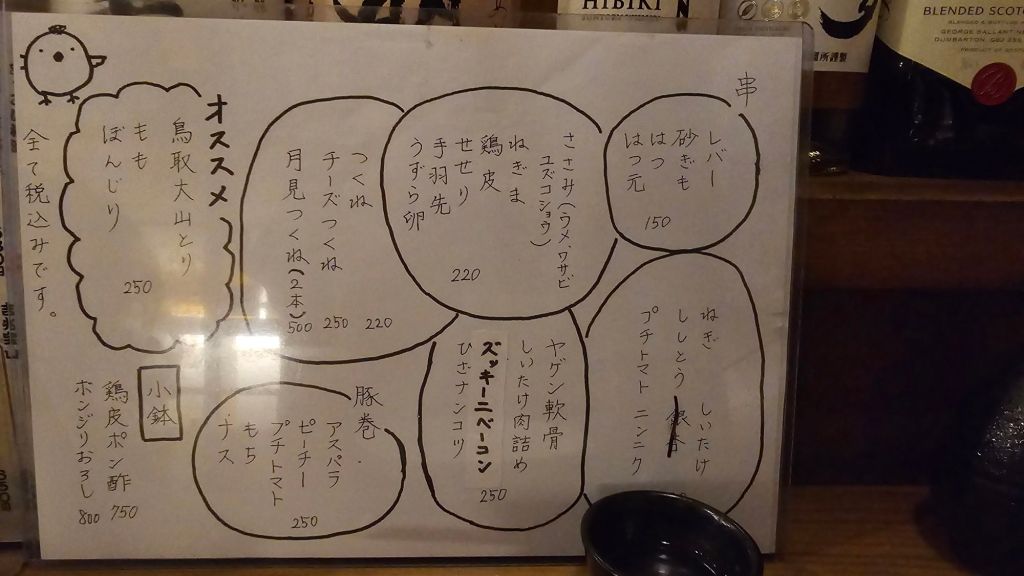 串
レバー
砂ぎも
はつ
はつ元
150
ささみ(ウメ、ワサビ
ユズコショウ)
ねぎま
鶏皮
せせり
手羽先
うずら卵
220
つくね 220
チーズつくね 250
月見つくね(2本) 500
オススメ
鳥取大山とり
もも
ぼんじり
250
全て税込みです。
ねぎ しいたけ
ししとう 銀杏
プチトマト ニンニク
ヤゲン軟骨
しいたけ肉詰め
ズッキーニベーコン
ひざナンコツ
250
豚巻
アスパラ
ピーチー
プチトマト
もち
ナス
250
小鉢
鶏皮ポン酢 750
ホンジリおろし 800
HIBIKI
BLENDED SCOT
GEORGE BALLANTINE